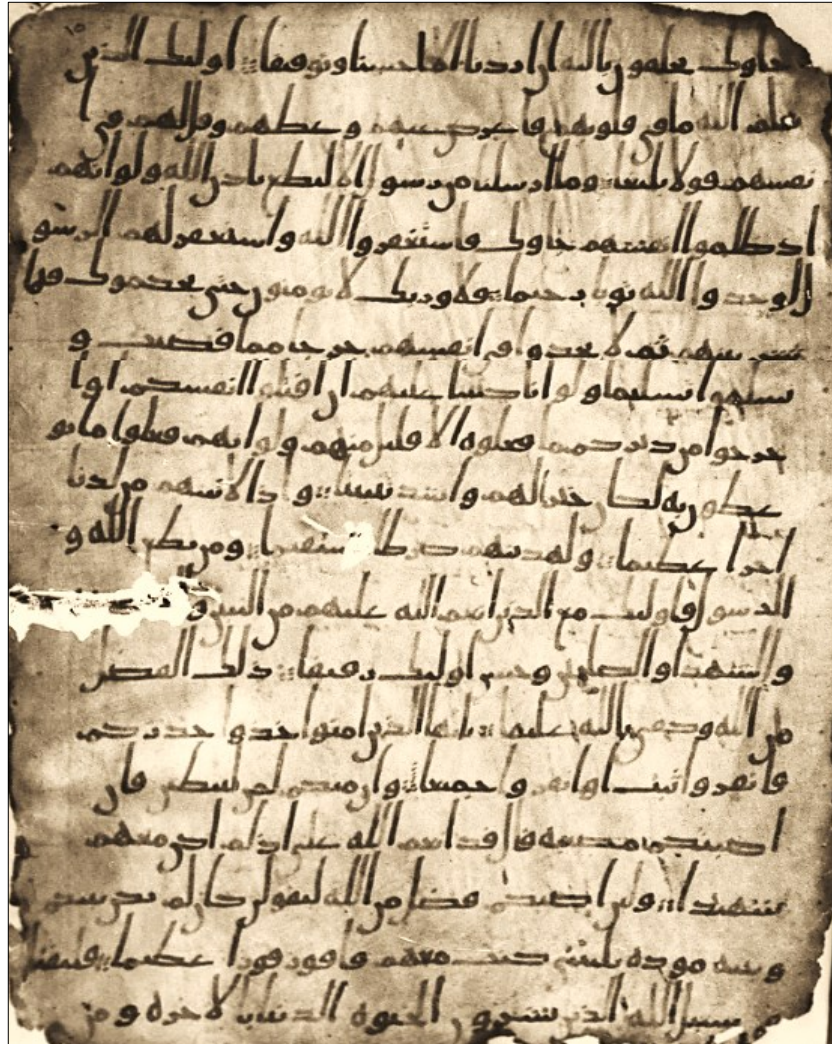 جاوك يحلفون بالله ان اردنا الا احسنا وتوفيقا اوليك الذين
يعلم الله ما في قلوبهم فاعرض عنهم وعظهم وقل لهم في ا
نفسهم قولا بليغا وما ارسلنا من رسول الا ليطع باذن الله ولو انهم
اذ ظلموا انفسهم جاوك فاستغفروا الله واستغفر لهم الرسو
ل لوجدوا الله توابا رحيما فلا وربك لا يومنون حتى يحكموك فيما
شجر بينهم ثم لا يجدوا في انفسهم حرجا مما قضيت و
يسلموا تسليما ولو انا كتبنا عليهم ان اقتلوا انفسكم او ا
خرجوا من ديركم ما فعلوه الا قليل منهم ولو انهم فعلوا ما يو
عظون به لكان خيرا لهم واشد تثبيتا واذا لاتينهم من لدنا
اجرا عظيما ولهدينهم صرطا مستقيما ومن يطع الله و
الرسول فاوليك مع الذين انعم الله عليهم من النبين و
والشهدا والصلحين وحسن اوليك رفيقا ذلك الفضل
من الله وكفى بالله عليما يايها الذين امنوا خذوا حذركم
فانفروا ثبت او انفروا جميعا وان منكم لمن ليبطين فان
اصبتكم مصيبه قال قد انعم الله علي اذ لم اكن معهم
شهيدا ولين اصبكم فضل من الله ليقولن كان لم يكن بينكم
وبينه موده يليتني كنت معهم فافوز فوزا عظيما فليقتل
في سبيل الله الذين يشرون الحيوه الدنيا بالاخره ومن